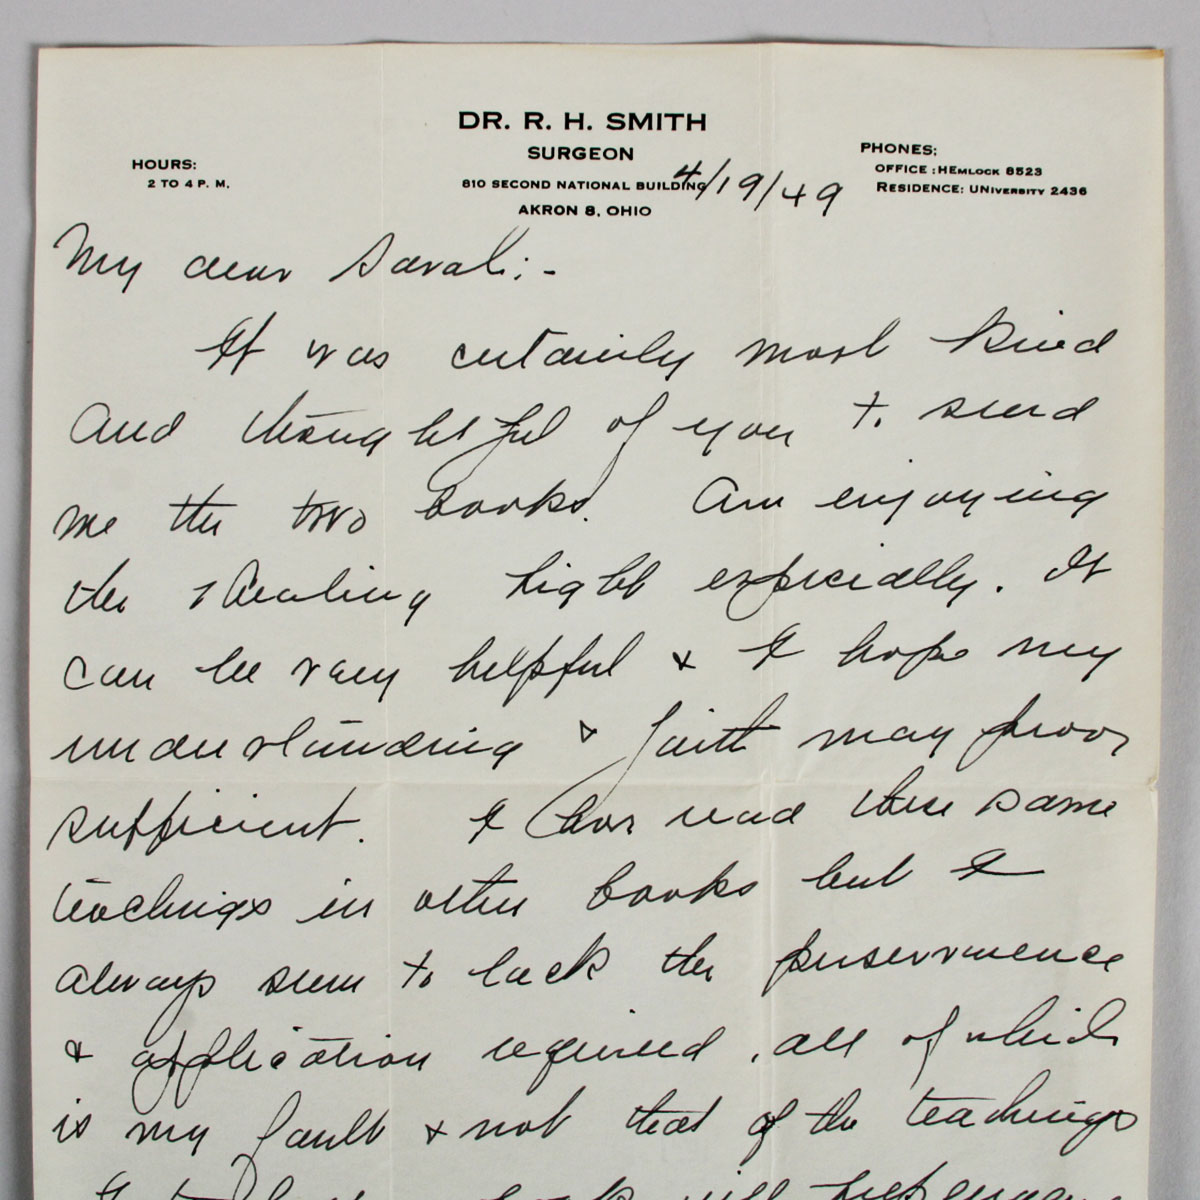 DR. R. H. SMITH
SURGEON
810 SECOND NATIONAL BUILDING
AKRON 8, OHIO
HOURS:
2 TO 4 P. M.
PHONES:
OFFICE: HEMLOCK 8523
RESIDENCE: UNIVERSITY 2436
4/19/49
My dear Sarah:-
It was certainly most kind
and thoughtful of you to send
me the two books. Am enjoying
the Healing Light especially. It
can be very helpful & I hope my
understanding & faith may prove
sufficient. I have read these same
teachings in other books but I
always seem to lack the perserverence
& application required, all of which
is my fault & not that of the teachings